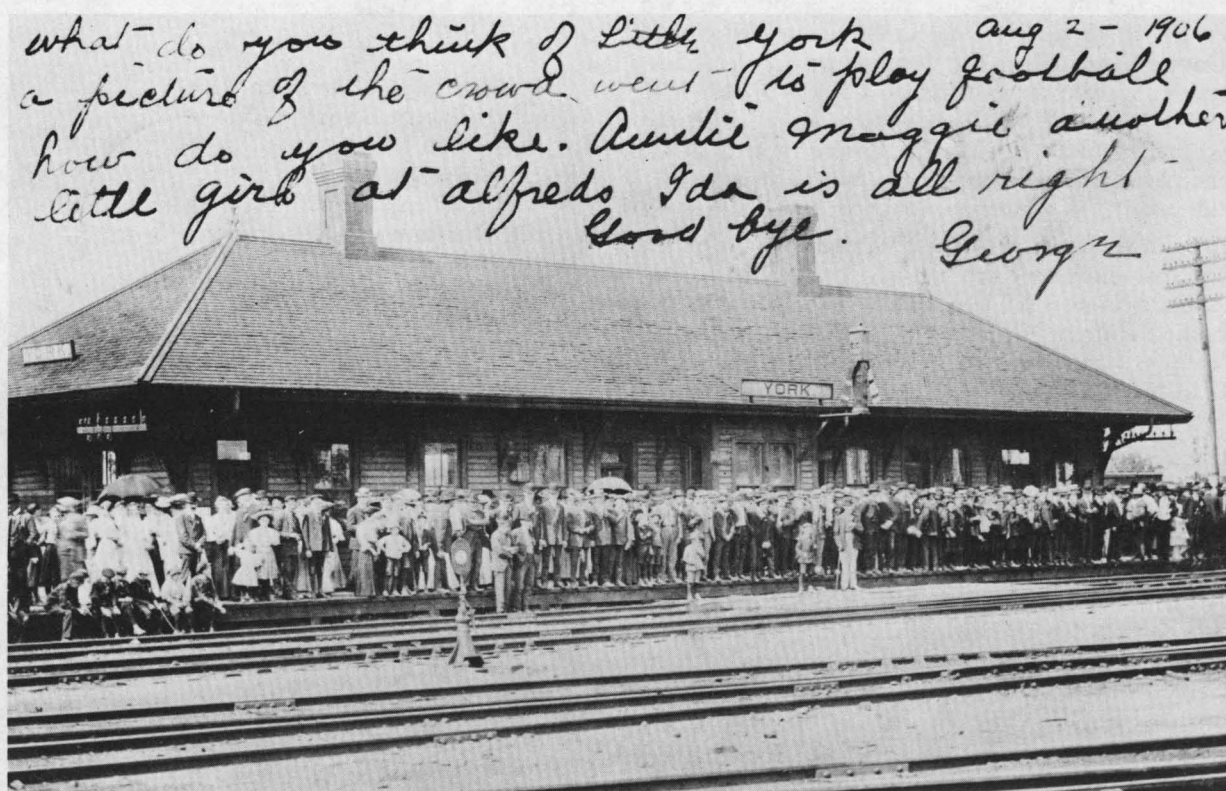 what do you think of Little York aug 2 - 1906
a picture of the crowd went to play football
how do you like. Auntie Maggie another
little girl at alfreds Ida is all right
Good bye. George
YORK